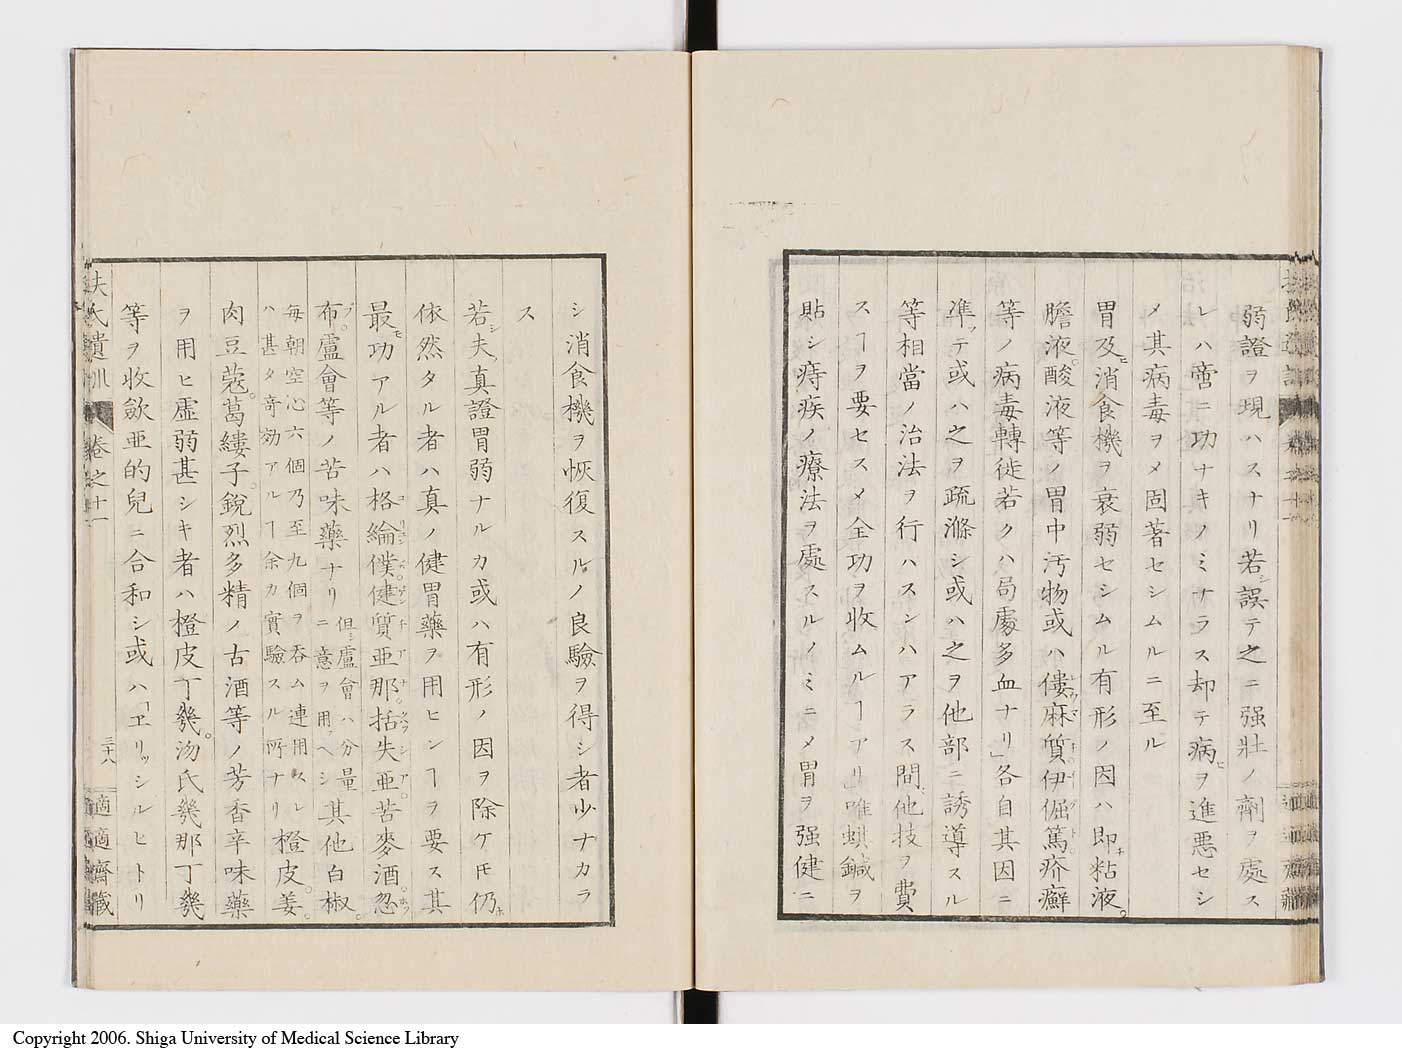 弱證ヲ現ハスナリ若シ誤テ之ニ强壯ノ劑ヲ處ス
レハ啻ニ功ナキノミナラス却テ病ヒヲ進悪セシ
メ其病毒ヲメ固著セシムルニ至ル
胃及ヒ消食機ヲ衰弱セシムル有形ノ因ハ即チ粘液。
膽液。酸液等ノ胃中汚物或ハ僂麻質伊倔篤疥癬
等ノ病毒轉徙若クハ局處多血ナリ」各自其因ニ
準ノッテ或ハ之ヲ疏滌シ或ハ之ヲ他部ニ誘導スル
等相當ノ治法ヲ行ハスンハアラス間他技ヲ費
スヿヲ要セスメ全功ヲ收ムルヿアリ」唯蜞鍼ヲ
貼シ痔疾ノ療法ヲ處スルノミニメ胃ヲ强健ニ
シ消食機ヲ恢復スルノ良驗ヲ得シ者少ナカラ
ス
若シ夫レ真證胃弱ナルカ或ハ有形ノ因ヲ除ケモ仍ホ
依然タル者ハ真ノ健胃藥ヲ用ヒンヿヲ要ス其
最モ功アル者ハ格綸僕。健質亜那。括失亜。苦麥酒。忽
布。盧會等ノ苦味藥ナリ但シ盧會ハ分量ニ意ヲ用ヘシ其他白椒。
毎朝空心六個乃至九個ヲ呑ム連用スレハ甚タ奇効アルヿ余カ實驗スル所ナリ橙皮。姜。
肉豆蔻。葛縷子。銳烈多精ノ古酒等ノ芳香辛味藥
ヲ用ヒ虛弱甚シキ者ハ橙皮丁幾。沕氏幾那丁幾
等ヲ收斂亜的兒ニ合和シ或ハ「エリッシルヒトリ
夫氏遺訓 卷之十一 三十八 適適齋藏
Copyright 2006. Shiga University of Medical Science Library